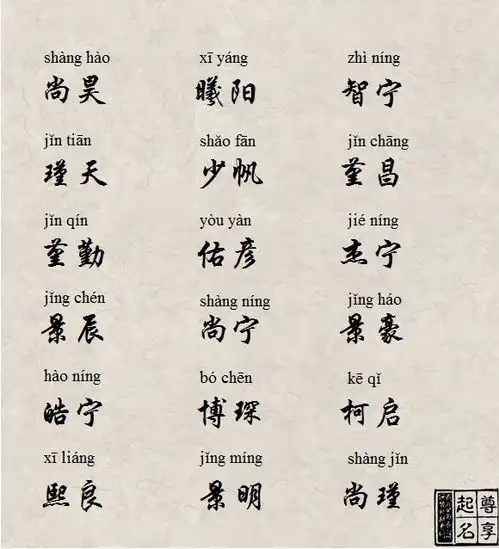 shàng hào xī yáng zhì níng
尚昊 曦阳 智宁
jǐn tiān shǎo fān jǐn chāng
瑾天 少帆 堇昌
jǐn qín yòu yàn jié níng
堇勤 佑彦 杰宁
jǐng chén shàng níng jǐng háo
景辰 尚宁 景豪
hào níng bó chēn kē qǐ
皓宁 博琛 柯启
xī liáng jǐng míng shàng jǐn
熙良 景明 尚瑾
尊享
起名